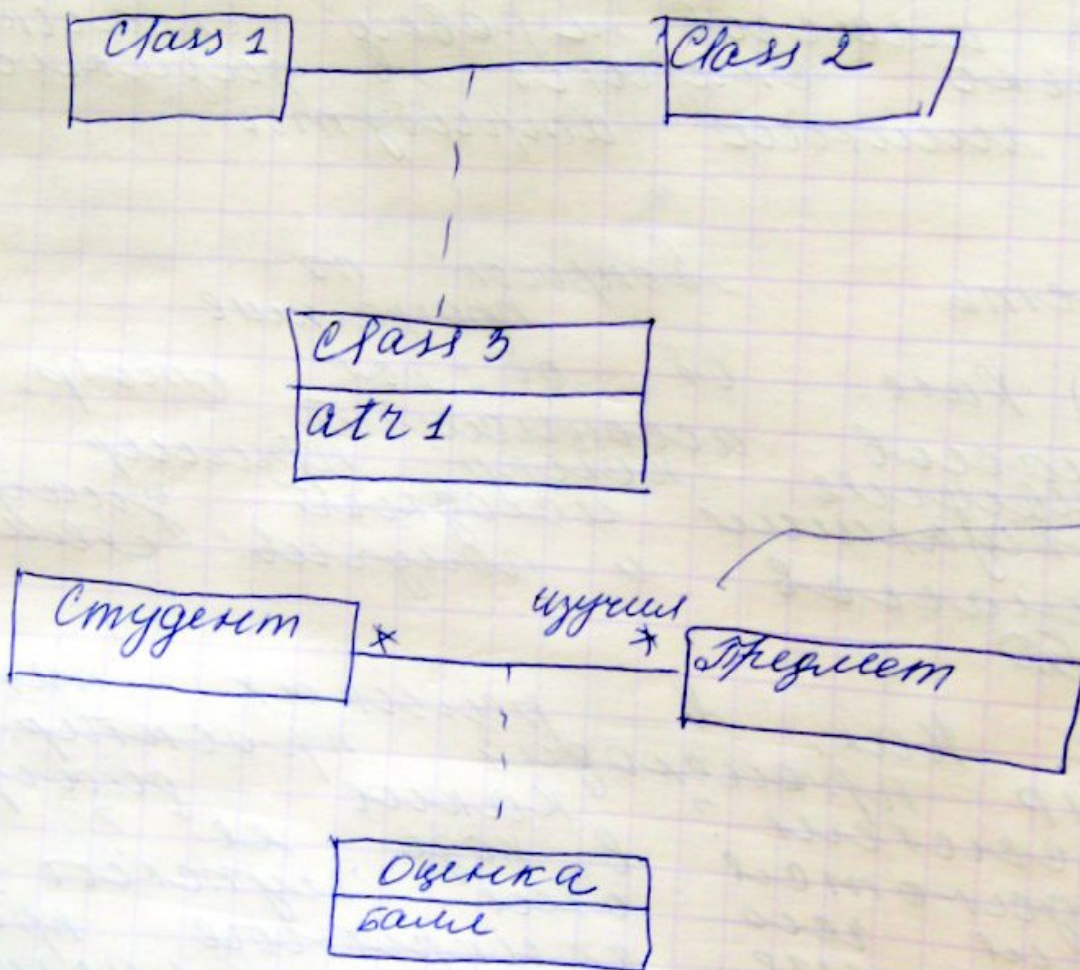 Class 1
Class 2
Class 3
atr 1
Студент
*
изучил
*
Предмет
оценка
балл